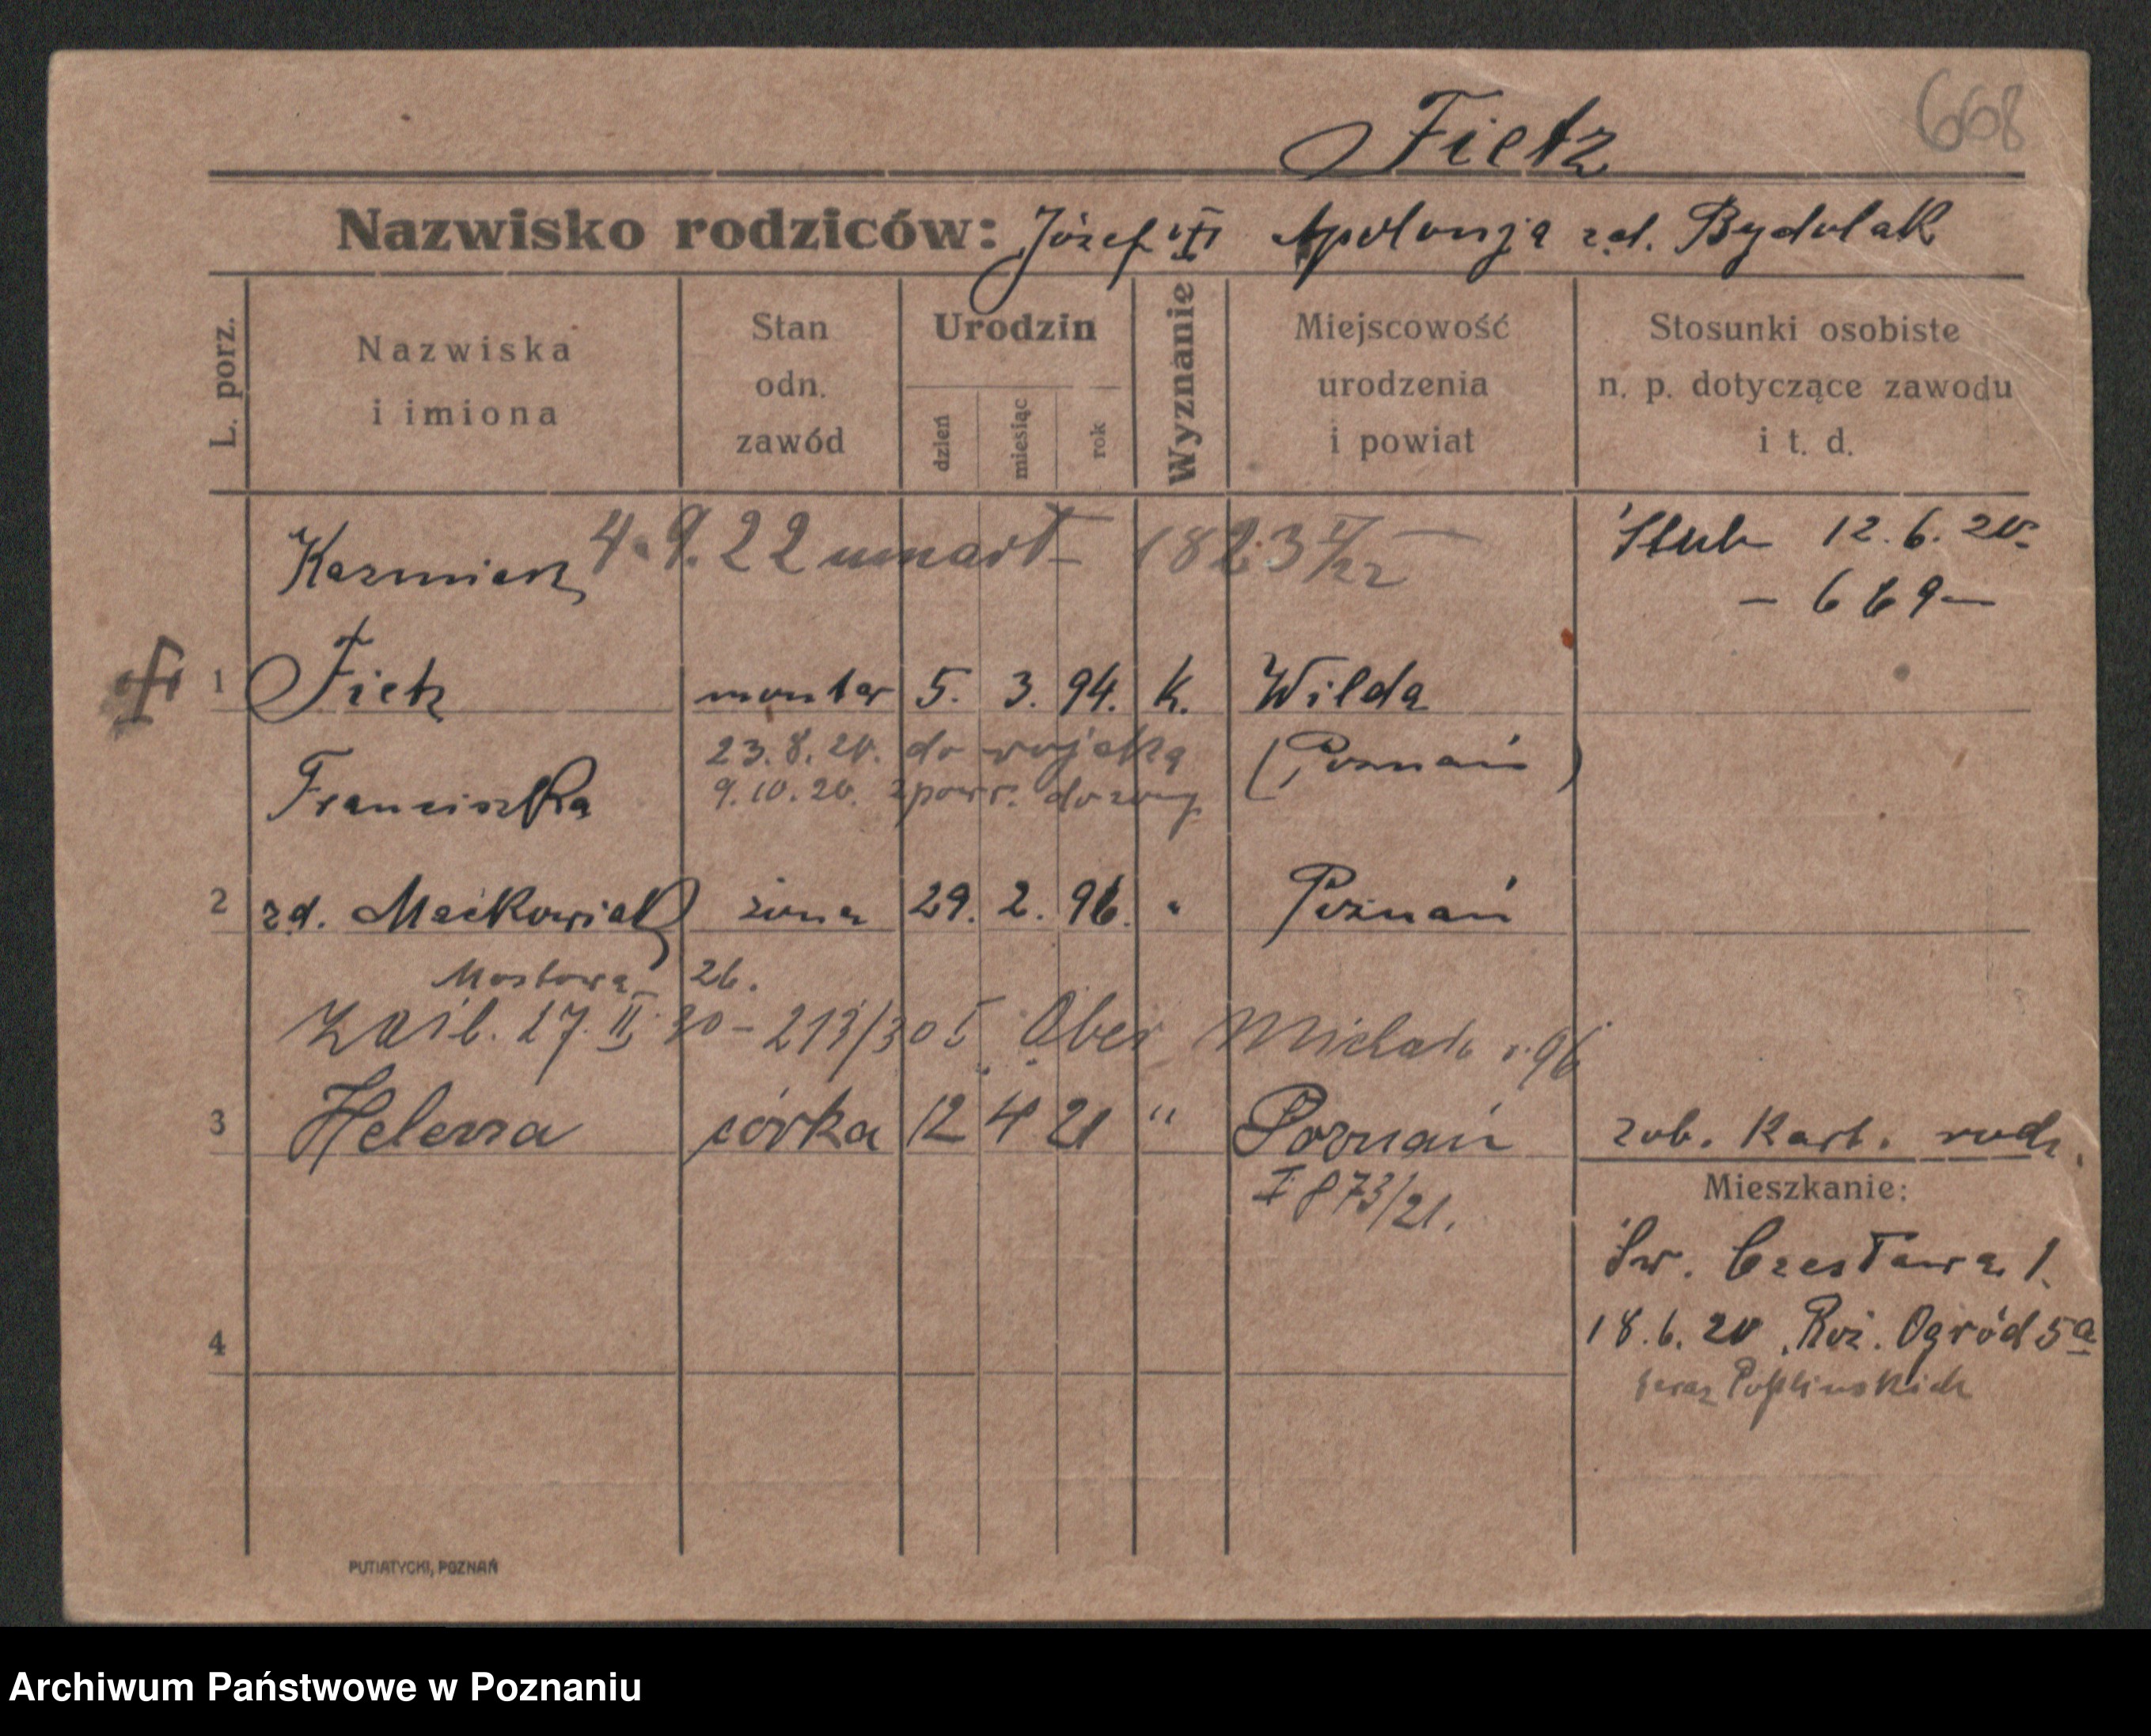 668
Fietz
Nazwisko rodziców: Józef Apolonja zd. Bydolak
L. porz.
Nazwiska i imiona
Stan odn. zawód
Urodzin
dzień miesiąc rok
Wyznanie
Miejscowość urodzenia i powiat
Stosunki osobiste n. p. dotyczące zawodu i t. d.
4.9.22 umarł - 1823
Kazmierz
Ślub 12.6.20.
- 669 -
1 Fietz monter 5. 3. 94. k. Wilda
23.8.20. do wojska (Poznań)
9.10.20. zpowr. do
Franciszka
2 zd. Maćkowiak żona 29. 2. 96. " Poznań
Mostowa 26.
17. II 30 - 213/30 Ober
3 Helena córka 12 4 21 " Poznań zob. Kart. rodz.
I 873/21.
Mieszkanie:
Św. Czesława 1.
18.6.20 Róż. Ogród 5a
4
teraz Poplinskich
PUTIATYCKI, POZNAŃ
Archiwum Państwowe w Poznaniu